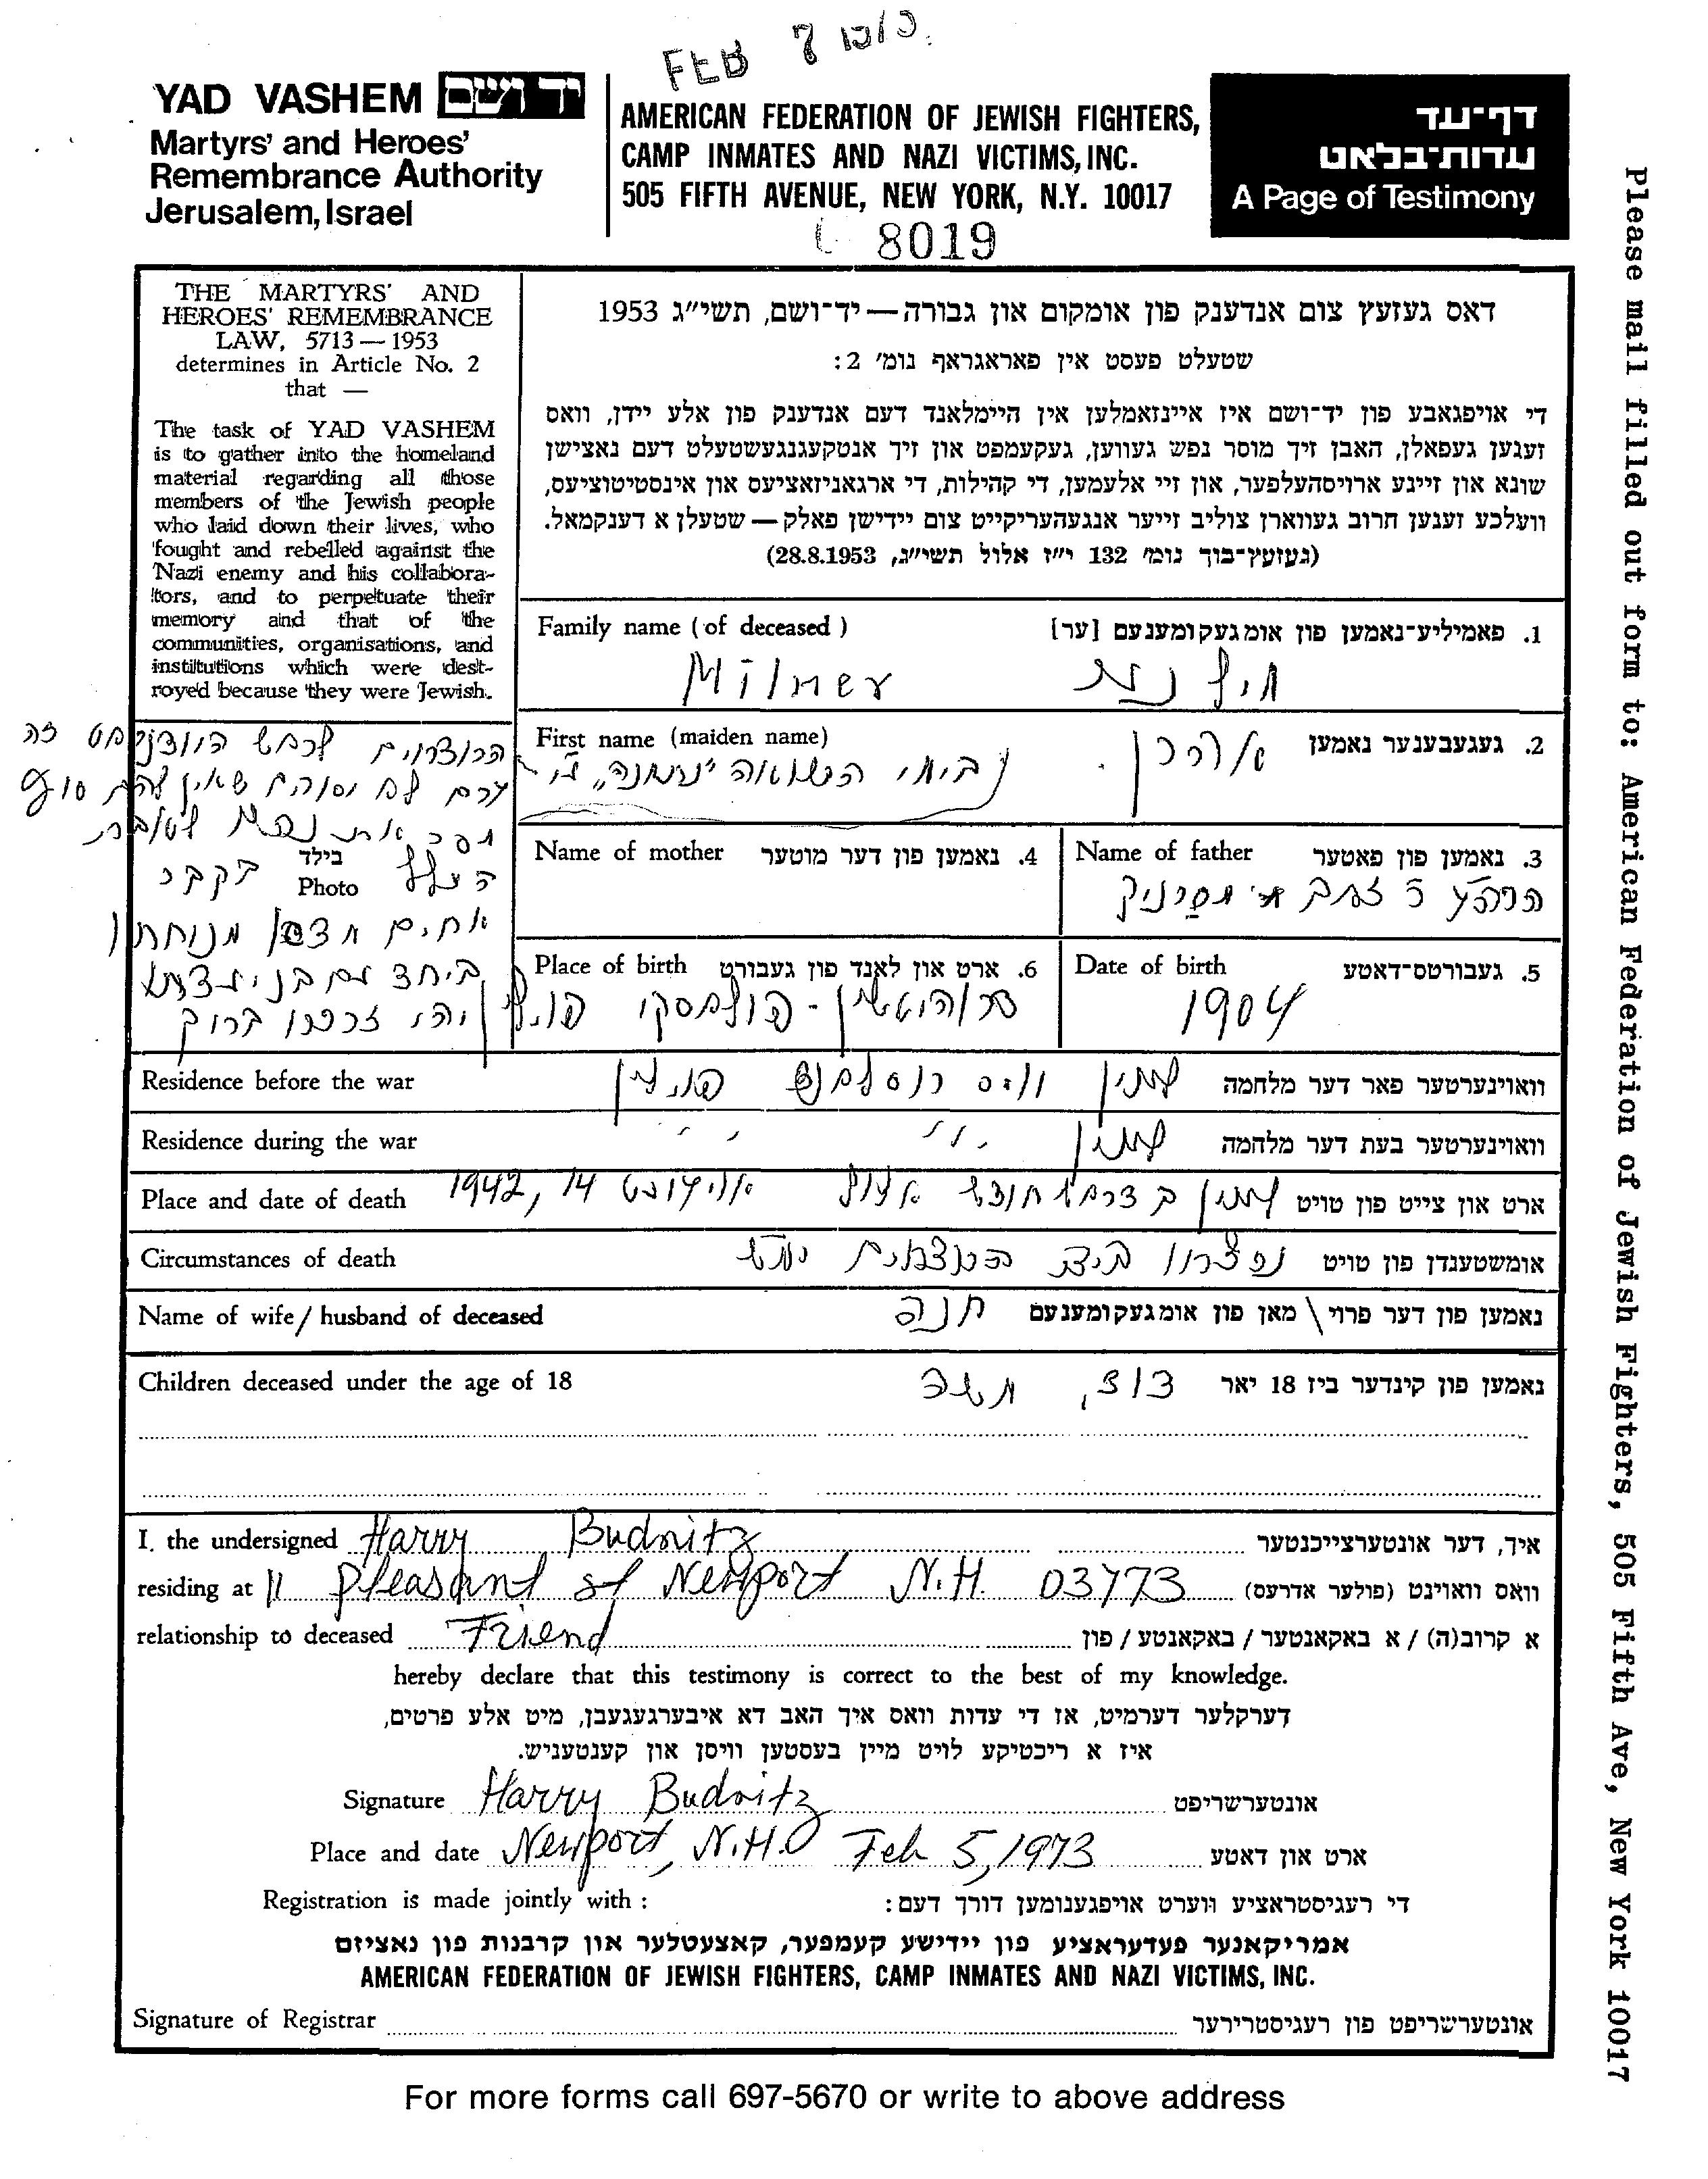 FEB 7
YAD VASHEM יד ושם
Martyrs' and Heroes'
Remembrance Authority
Jerusalem, Israel
AMERICAN FEDERATION OF JEWISH FIGHTERS,
CAMP INMATES AND NAZI VICTIMS, INC.
505 FIFTH AVENUE, NEW YORK, N.Y. 10017
8019
דף-עד
עדות-בלאט
A Page of Testimony
Please mail filled out form to: American Federation of Jewish Fighters, 505 Fifth Ave, New York 10017
THE MARTYRS' AND
HEROES' REMEMBRANCE
LAW, 5713 — 1953
determines in Article No. 2
that —
The task of YAD VASHEM
is to gather into the homeland
material regarding all those
members of the Jewish people
who laid down their lives, who
fought and rebelled against the
Nazi enemy and his collabora-
tors, and to perpetuate their
memory and that of the
communities, organisations, and
institutions which were dest-
royed because they were Jewish.
דאס געזעץ צום אנדענק פון אומקום און גבורה — יד-ושם, תשי"ג 1953
שטעלט פעסט אין פאראגראף נומ' 2:
די אויפגאבע פון יד-ושם איז איינזאמלען אין היימלאנד דעם אנדענק פון אלע יידן, וואס
זענען געפאלן, האבן זיך מוסר נפש געווען, געקעמפט און זיך אנטקעגנגעשטעלט דעם נאצישן
שונא און זיינע ארויסהעלפער, און זיי אלעמען, די קהילות, די ארגאניזאציעס און אינסטיטוציעס,
וועלכע זענען חרוב געווארן צוליב זייער אנגעהעריקייט צום יידישן פאלק — שטעלן א דענקמאל.
(געזעץ-בוך נומ' 132 י"ז אלול תשי"ג, 28.8.1953)
Family name (of deceased) 1. פאמיליע-נאמען פון אומגעקומענעם [ער]
Milner מילנר
First name (maiden name) 2. געגעבענער נאמען אהרן
בימי השואה
Name of mother 4. נאמען פון דער מוטער
Name of father 3. נאמען פון פאטער
Place of birth 6. ארט און לאנד פון געבורט
Date of birth 5. געבורטס-דאטע
1904
בילד
Photo
אחים
ביחד עם בני
ויהי זכרו ברוך
Residence before the war וואוינערטער פאר דער מלחמה לנין ווייס רוסלאנד פוילין
Residence during the war וואוינערטער בעת דער מלחמה לנין " "
Place and date of death ארט און צייט פון טויט חודש אלול אויגוסט 14, 1942
Circumstances of death אומשטענדן פון טויט בידי הנאצים ימ"ש
Name of wife / husband of deceased נאמען פון דער פרוי \ מאן פון אומגעקומענעם חנה
Children deceased under the age of 18 נאמען פון קינדער ביז 18 יאר דוד, משה
I, the undersigned Harry Budnitz איך, דער אונטערצייכנטער
residing at 11 Pleasant st Newport N.H. 03773 וואס וואוינט (פולער אדרעס)
relationship to deceased Friend א קרוב(ה) / א באקאנטער / באקאנטע / פון
hereby declare that this testimony is correct to the best of my knowledge.
דערקלער דערמיט, אז די עדות וואס איך האב דא איבערגעגעבן, מיט אלע פרטים,
איז א ריכטיקע לויט מיין בעסטען וויסן און קענטעניש.
Signature Harry Budnitz אונטערשריפט
Place and date Newport, N.H. Feb 5, 1973 ארט און דאטע
Registration is made jointly with : די רעגיסטראציע ווערט אויפגענומען דורך דעם:
אמריקאנער פעדעראציע פון יידישע קעמפער, קאצעטלער און קרבנות פון נאציזם
AMERICAN FEDERATION OF JEWISH FIGHTERS, CAMP INMATES AND NAZI VICTIMS, INC.
Signature of Registrar אונטערשריפט פון רעגיסטרירער
For more forms call 697-5670 or write to above address